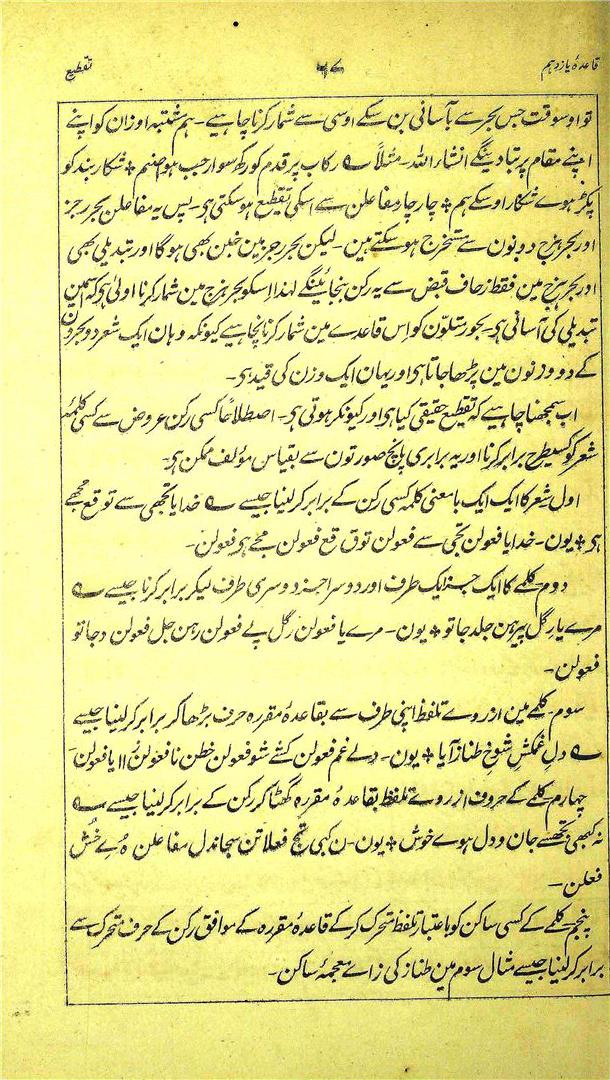 قاعدۂ یازدہم ۵۷ تقطیع
تو اوسوقت جس بحر سے بآسانی بن سکے اوسی سے شمار کرنا چاہیے۔ ہم مشتبہ اوزان کو اپنے
اپنے مقام پر بتا دینگے انشاء اللہ۔ مثلاً ؎ رکاب پر قدم کو رکھ سوار جب ہوا صنم ٭ شکار بند کو
پکڑ ہوے شکار اوسکے ہم ٭ چار چار مفاعلن سے اسکی تقطیع ہو سکتی ہی۔ پس یہ مفاعلن بحر رجز
اور بحر ہزج دونون سے مستخرج ہو سکتے ہین۔ لیکن بحر رجز مین خبن بھی ہوگا اور تبدیلی بھی
اور بحر ہزج مین فقط زحاف قبض سے یہ رکن بنجائینگے لہذا اسکو بحر ہزج مین شمار کرنا اولیٰ ہی کہ اسمین
تبدیلی کی آسانی ہی۔ بحور متلوّن کو اِس قاعدے مین شمار کرنا نچاہیے کیونکہ وہان ایک شعر دو بحرون
کے دو وزنون مین پڑھا جاتا ہی اور یہان ایک وزن کی قید ہی۔
اب سمجھنا چاہیے کہ تقطیع حقیقی کیا ہی اور کیونکر ہوتی ہی۔ اصطلاحاً کسی رکن عروض سے کسی کلمۂ
شعر کو کسیطرح برابر کرنا اور یہ برابری پانچ صورتون سے بقیاس مؤلف ممکن ہی۔
اول شعر کا ایک ایک بامعنی کلمہ کسی رکن کے برابر کرلینا جیسے ؎ خدایا تجھی سے توقع مجھے
ہی ٭ یون۔ خدایا فعولن تجی سے فعولن توق قع فعولن مجے ہی فعولن۔
دوم کلمے کا ایک جز ایک طرف اور دوسرا جز دوسری طرف لیکر برابر کرنا جیسے ؎
مرے یارِ گل پیرہن جلد جا تو ٭ یون۔ مرے یا فعولن رگل پے فعولن رہن جل فعولن د جا تو
فعولن۔
سوم کلمے مین از روے تلفظ اپنی طرف سے بقاعدۂ مقررہ حرف بڑھا کر برابر کرلینا جیسے
؎ دلِ غمکشِ شوخِ طناز آیا ٭ یون۔ دلے غم فعولن کشے شو فعولن خطن نا فعولن زاایا فعولن۔
چہارم کلمے کے حروف از روے تلفظ بقاعدۂ مقررہ گھٹا کر رکن کے برابر کرلینا جیسے ؎
نہ کبھی تجھسے جان و دل ہوے خوش ٭ یون۔ ن کبی تج فعلاتن سجاندل مفاعلن ہُ ے خُش
فعلن۔
پنجم کلمے کے کسی ساکن کو باعتبار تلفظ متحرک کر کے قاعدۂ مقررہ کے موافق رکن کے حرف متحرک سے
برابر کرلینا جیسے مثال سوم مین طناز کی زاے معجمۂ ساکن۔